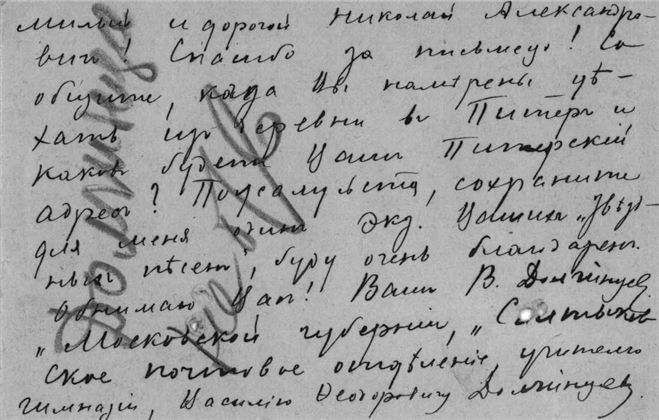 милый и дорогой Николай Александро-
вич! Спасибо за письмецо! Со
общите, когда Вы намѣрены уѣ-
хать изъ деревни въ Питеръ и
каковъ будетъ Вашъ Питерскій
адресъ? Пожалуйста, сохраните
для меня одинъ экз. Вашихъ „Звѣзд-
ныхъ пѣсенъ", буду очень благодаренъ.
Обнимаю Васъ! Вашъ В. Долгинцев
„Московской губерніи, „
ское почтовое отдѣленіе, учителю
гимназіи, Василію Ѳедоровичу Долгинцеву.